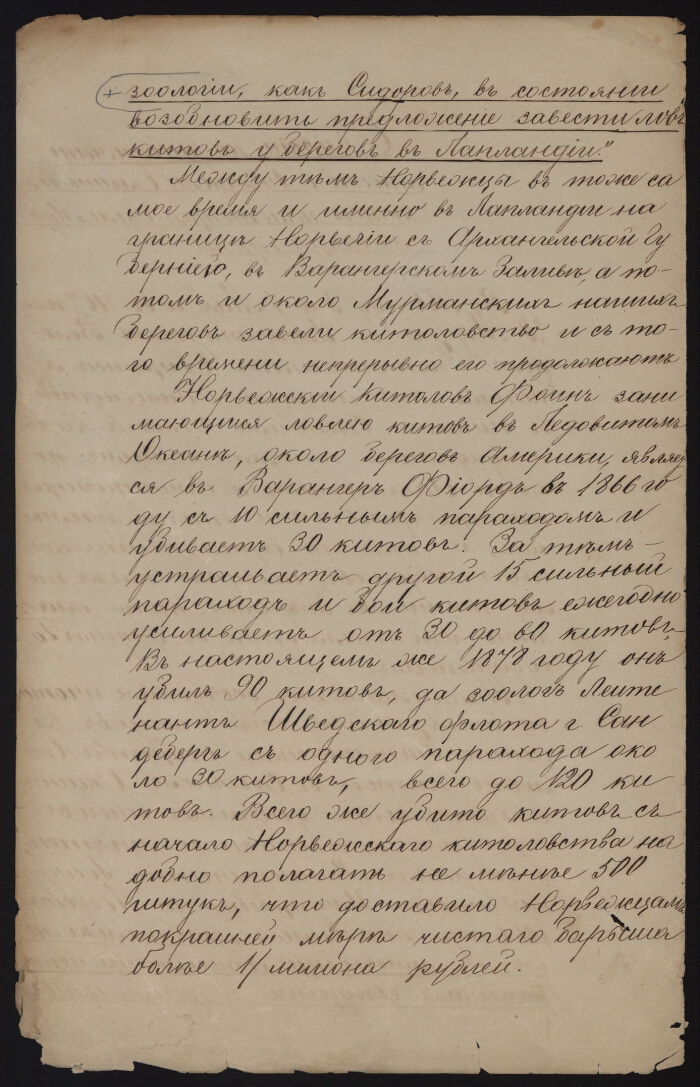 зоологіи, какъ Сидоровъ, въ состояніи
возобновить предложеніе завести ловъ
китовъ у береговъ въ Лапландіи."
Между тѣмъ Норвежцы въ тоже са
мое время и именно въ Лапландіи на
границѣ Норвегіи съ Архангельской Гу
берніею, въ Варангерскомъ Заливѣ, а по-
томъ и около Мурманскихъ нашихъ
береговъ завели китоловство и съ то-
го времени непрерывно его продолжаютъ
Норвежскій китоловъ Фоинъ зани
мающійся ловлею китовъ въ Ледовитомъ
Океанѣ, около береговъ Америки, являет
ся въ Варангеръ Фіордъ въ 1866 го
ду съ 10 сильнымъ параходомъ и
убиваетъ 30 китовъ. За тѣмъ –
устраиваетъ другой 15 сильный
параходъ и бои китовъ ежегодно
усиливаетъ отъ 30 до 60 китовъ.
Въ настоящемъ же 1878 году онъ
убилъ 90 китовъ, да зоологъ Лейте
нантъ Шведскаго флота г. Сан
дебергъ съ одного парахода око
ло 30 китовъ, всего до 120 ки
товъ. Всего же убито китовъ съ
начало Норвежскаго китоловства на
добно полагать не менѣе 500
штукъ, что доставило Норвежцамъ
покрайней мѣрѣ чистаго барыша
болѣе 1/ милiона рублей.